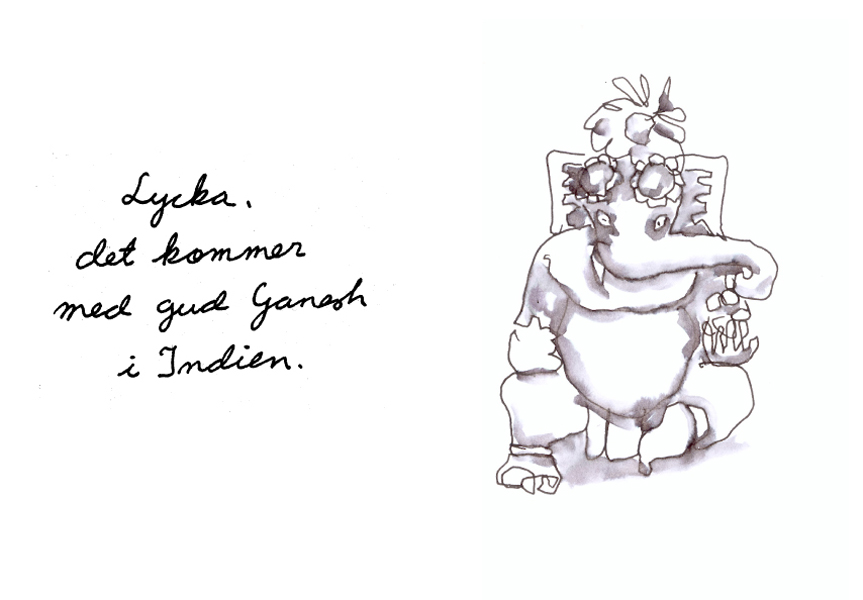 Lycka.
det kommer
med gud Ganesh
i Indien.